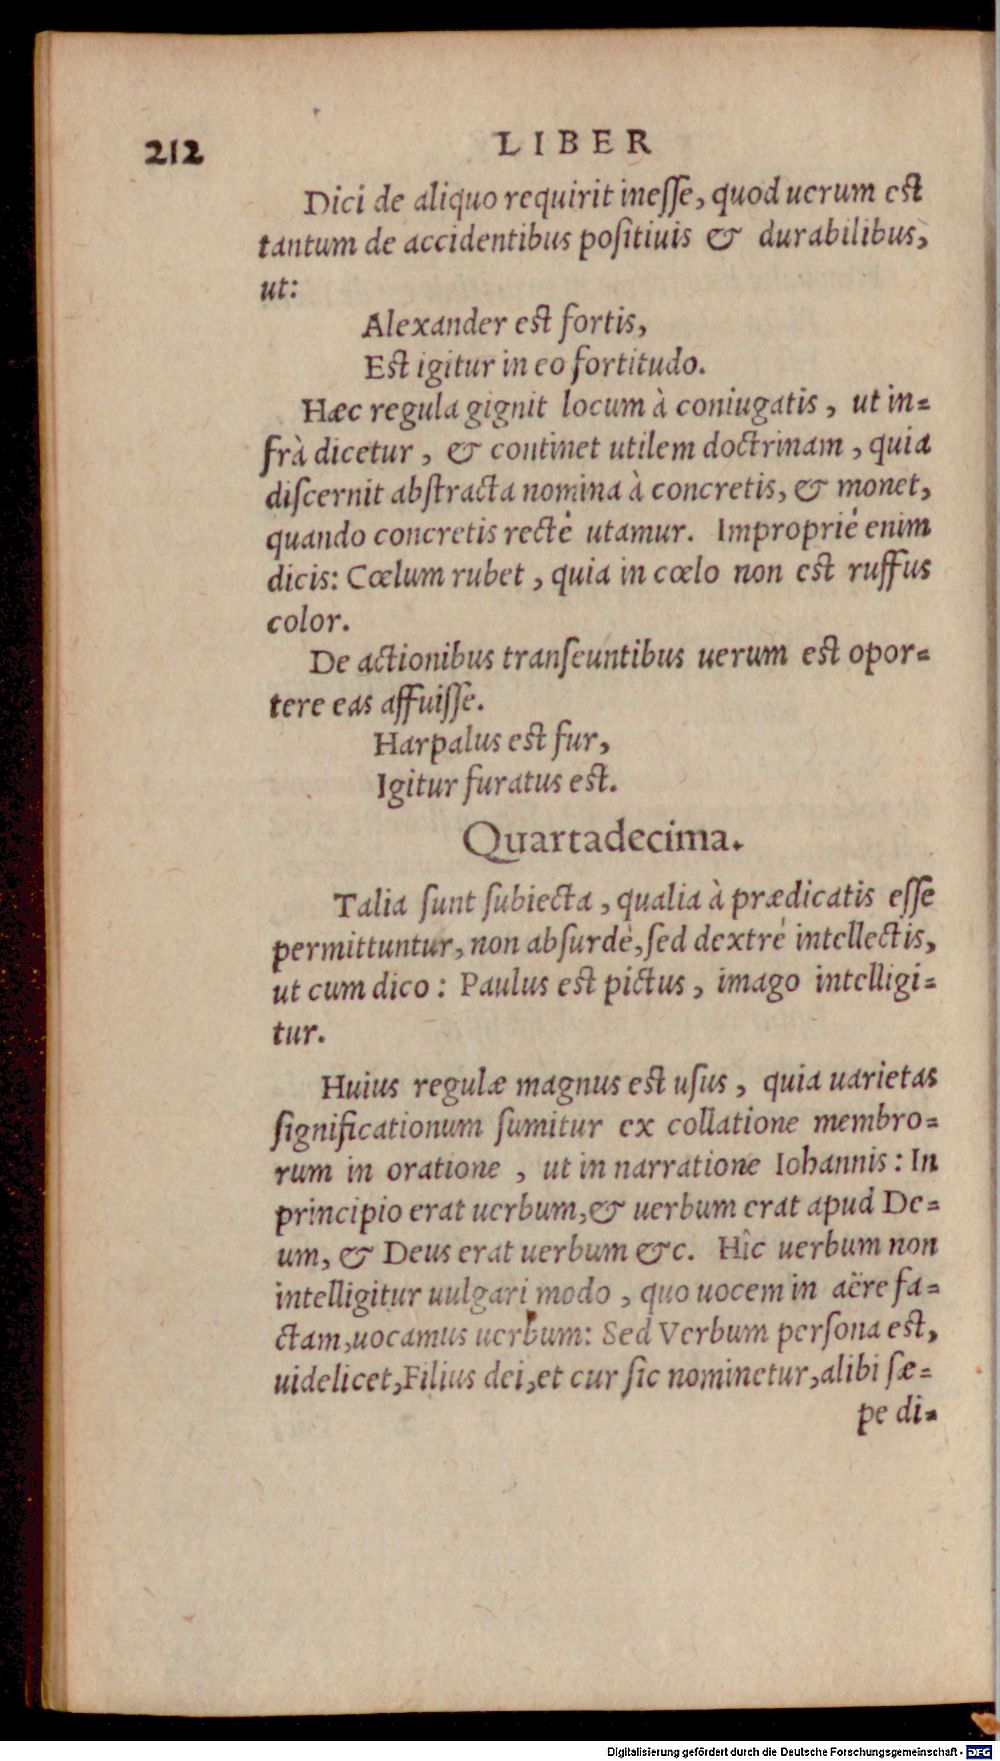 212
LIBER
Dici de aliquo requirit inesse, quod uerum est
tantum de accidentibus positiuis & durabilibus,
ut:
Alexander est fortis,
Est igitur in eo fortitudo.
Hæc regula gignit locum à coniugatis, ut in-
frà dicetur, & continet utilem doctrinam, quia
discernit abstracta nomina à concretis, & monet,
quando concretis rectè utamur. Impropriè enim
dicis: Cœlum rubet, quia in cœlo non est ruffus
color.
De actionibus transeuntibus uerum est opor-
tere eas affuisse.
Harpalus est fur,
Igitur furatus est.
Quartadecima.
Talia sunt subiecta, qualia à prædicatis esse
permittuntur, non absurdè, sed dextrè intellectis,
ut cum dico: Paulus est pictus, imago intelligi-
tur.
Huius regulæ magnus est usus, quia uarietas
significationum sumitur ex collatione membro-
rum in oratione, ut in narratione Iohannis: In
principio erat uerbum, & uerbum erat apud De-
um, & Deus erat uerbum &c. Hîc uerbum non
intelligitur uulgari modo, quo uocem in aëre fa-
ctam, uocamus uerbum: Sed Verbum persona est,
uidelicet, Filius dei, et cur sic nominetur, alibi sæ-
pe di-
Digitalisierung gefördert durch die Deutsche Forschungsgemeinschaft - DFG